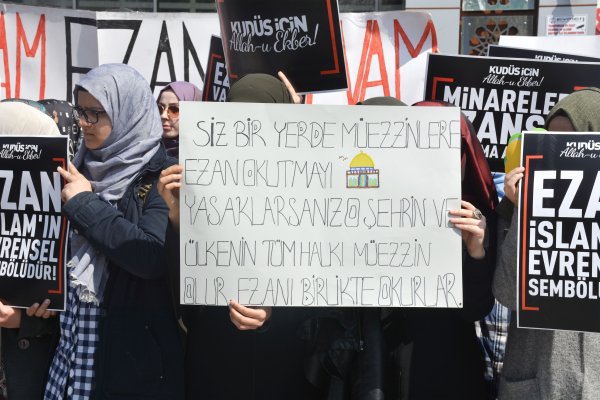 AM EZAN VAM
KUDÜS İÇİN
Allah-u Ekber!
KUDÜS İÇİN
Allah-u Ekber!
MİNARELE
ZANS
MA
SİZ BİR YERDE MÜEZZİNLERE
EZAN OKUTMAYI
YASAKLARSANIZ O ŞEHRİN VE
ÜLKENİN TÜM HALKI MÜEZZİN
OLUR EZANI BİRLİKTE OKURLAR.
KUDÜS İÇİN
Allah-u Ekber!
ZAN
SLAM'IN
VRENSEL
MBOLÜDÜR!
KUDÜS İÇİN
Allah-u Ekber!
EZA
İSLAM
EVREN
SEMBOLÜ